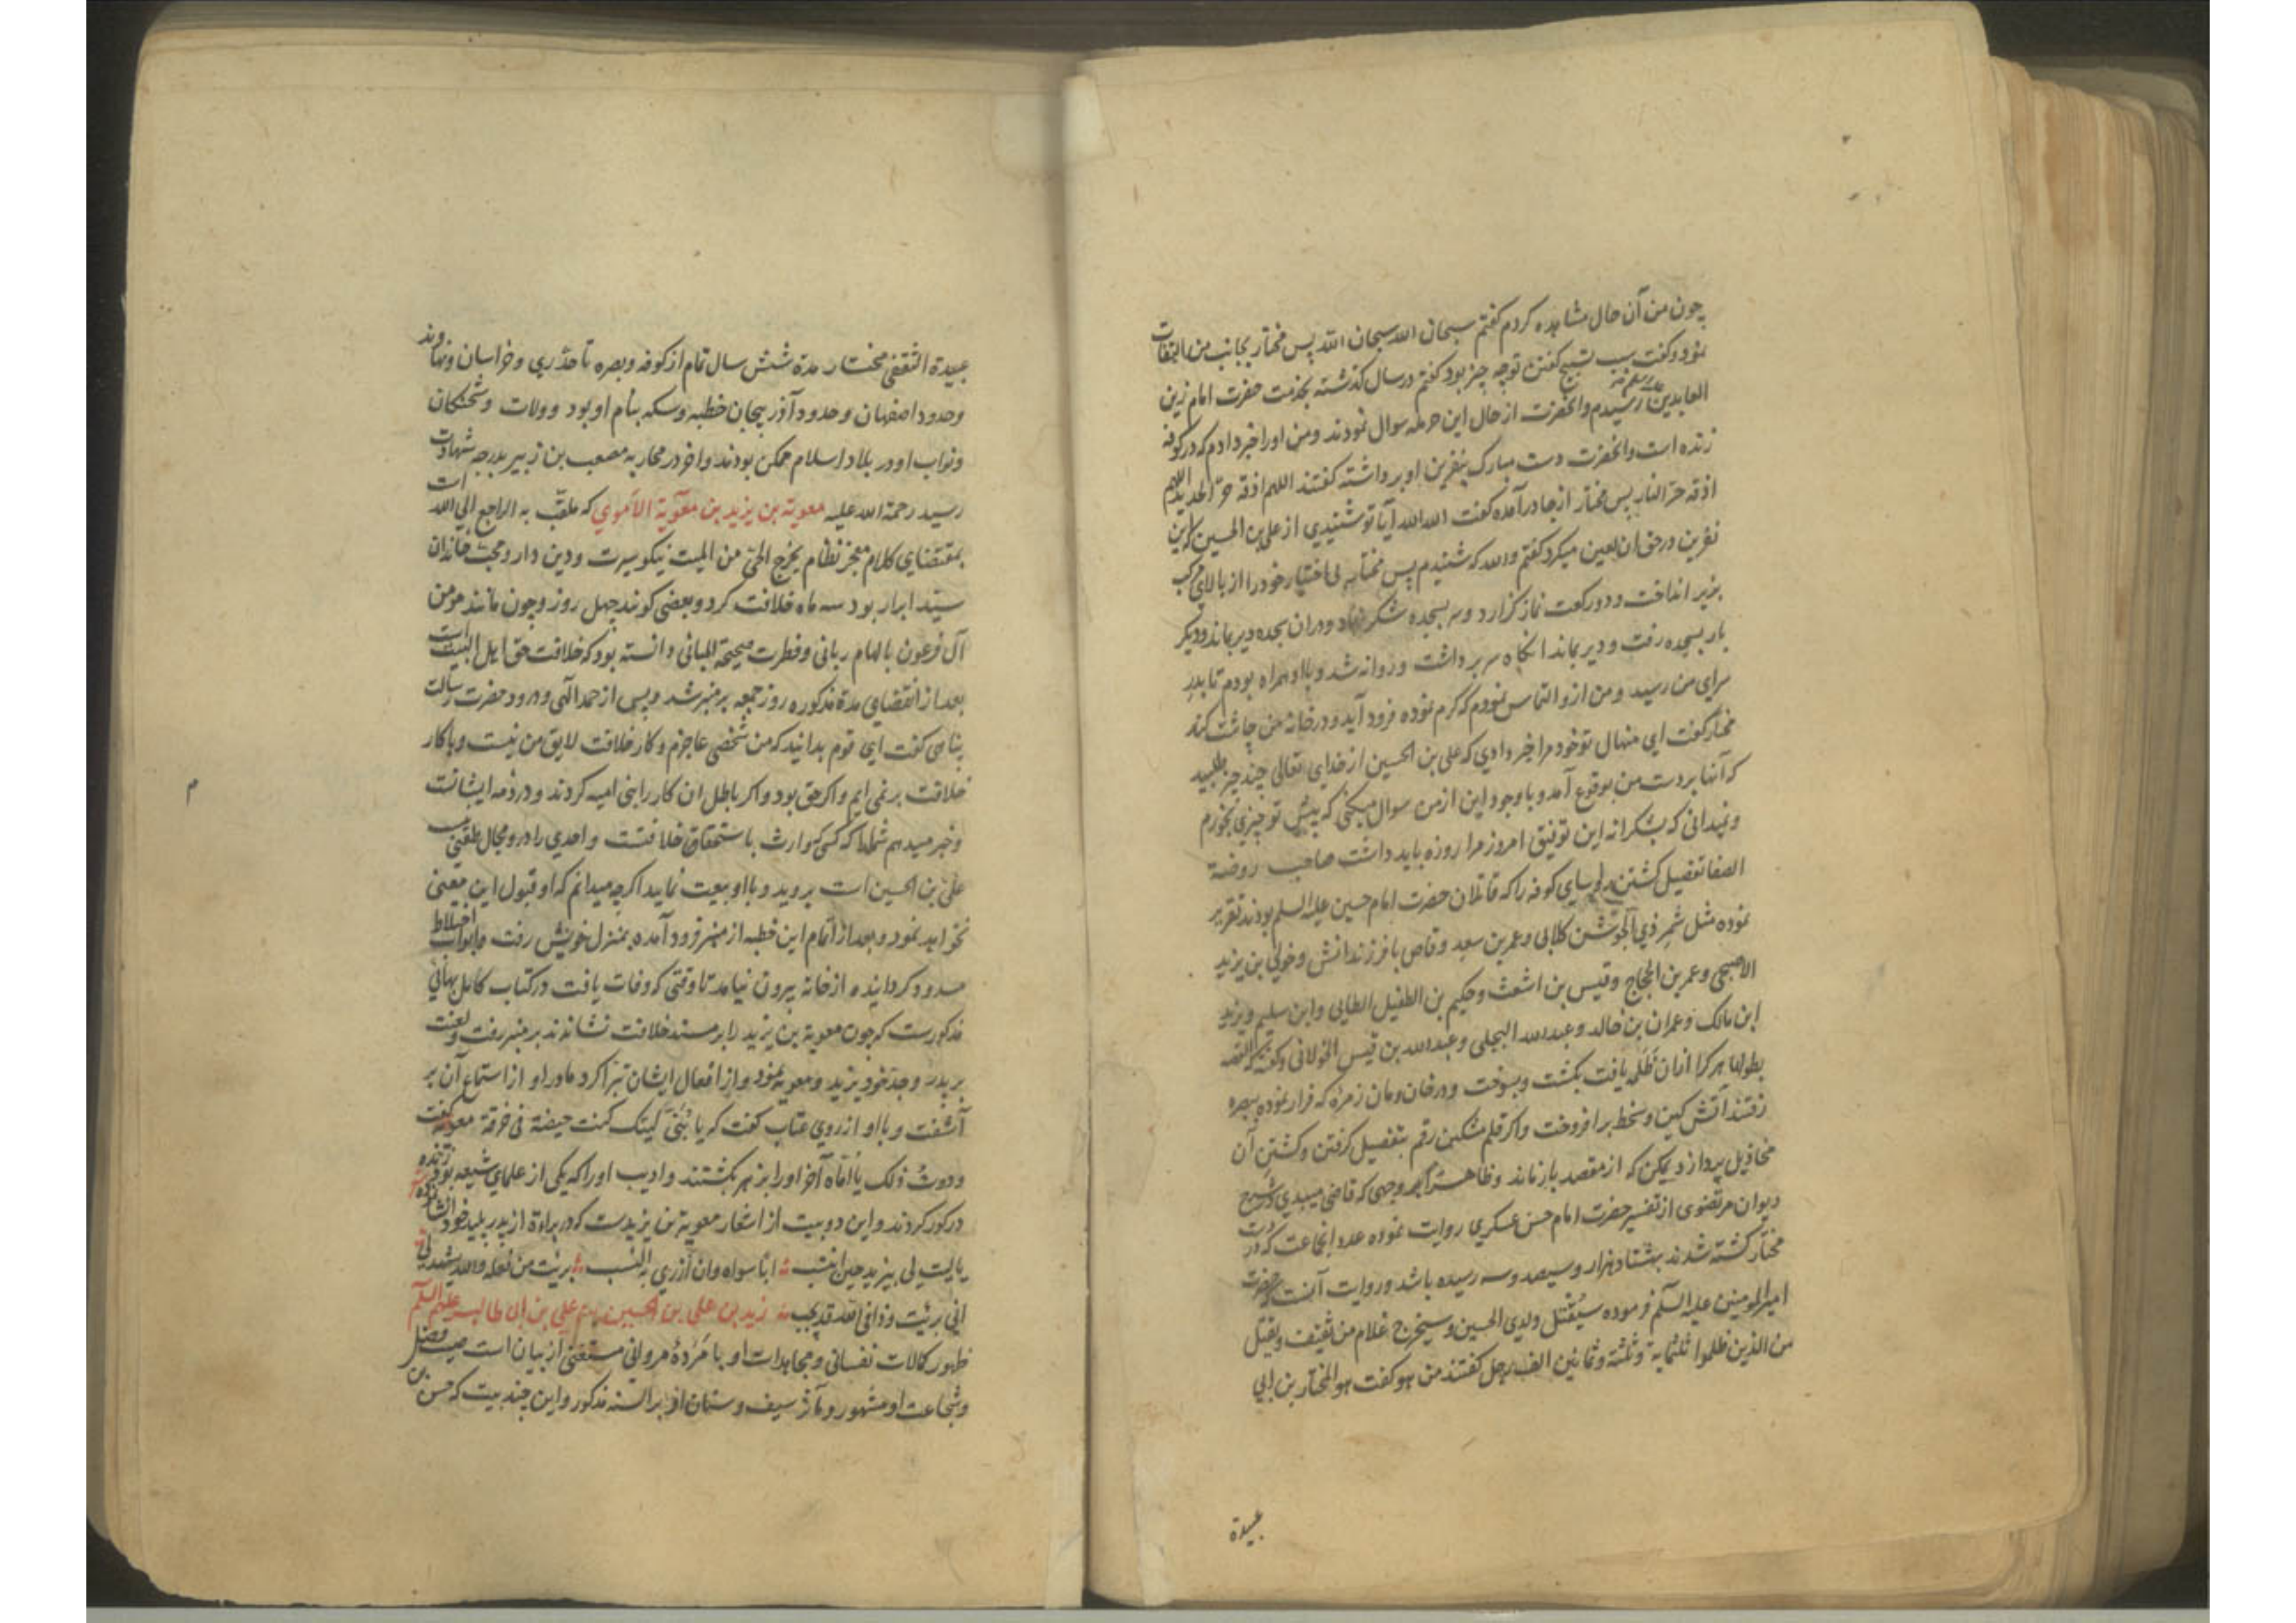 چون من آن حال مشاهده کردم کفتم سبحان الله سبحان الله پس مختار بجانب من التفات
نمود و کفت سبب تسبیح کفتن تو چه چیز بود کفتم در سال کذشته بخدمت حضرت امام زین
العابدین رسیدم و آنحضرت از حال این حرمله سوال نمودند و من اورا خبر دادم که در کوفه
زنده است و آنحضرت دست مبارک بنفرین او برداشته کفتند اللهم اذقه حرّ الحدید اللهم
اذقه حرّ النار پس مختار از جا درآمده کفت الله الله آیا تو شنیدی از علی بن الحسین که این
نفرین در حق ان لعین میکرد کفتم والله که شنیدم پس مختار بی اختیار خود را از بالای مرکب
بزیر انداخت و دو رکعت نماز کزارد و سر بسجده شکر نهاد و دران سجده دیر بماند و دیکر
بار بسجده رفت و دیر بماند انکاه سر برداشت و روانه شد و با او همراه بودم تا بدر
سرای من رسید و من ازو التماس نمودم که کرم نموده فرود آید و در خانه من چاشت کند
مختار کفت ای منهال تو خود مرا خبر دادی که علی بن الحسین از خدای تعالی چند چیز طلبید
که آنها بر دست من بوقوع آمد و با وجود این از من سوال میکنی که پیش تو چیزی بخورم
و نمیدانی که بشکرانه این توفیق امروز مرا روزه باید داشت صاحب روضة
الصفا تفصیل کشتن روسای کوفه را که قاتلان حضرت امام حسین علیه السلم بودند تقریر
نموده مثل شمر ذی الجوشن کلابی و عمر بن سعد وقاص با فرزندانش و خولی بن یزید
الاصبحی و عمر بن الحجاج و قیس بن اشعث و حکیم بن الطفیل الطایی و ابن سلیم و یزید
ابن مالک و عمران بن خالد و عبدالله البجلی و عبدالله بن قیس الخولانی
بطولها هر کرا ازان ظلمه یافت بکشت و بسوخت و در خان و مان زمره که فرار نموده ببصره
رفتند آتش کین و سخط برافروخت و اکر قلم مشکین رقم بتفصیل کرفتن و کشتن آن
مخاذیل پردازد یمکن که از مقصد باز ماند و ظاهرا بر وجهی که قاضی میبدی در شرح
دیوان مرتضوی از تفسیر حضرت امام حسن عسکری روایت نموده عدد انجماعت که در دست
مختار کشته شدند بهشتاد هزار و سیصد و سه رسیده باشد و روایت آنست که حضرت
امیر المومنین علیه السلم فرموده سیقتل ولدی الحسین و سیخرج غلام من ثقیف و یقتل
من الذین ظلموا ثلثمایة و ثلثة و ثمانین الف رجل کفتند من هو کفت هو المختار بن ابی
عبیدة
عبیدة الثقفی مختار مدة شش سال تمام از کوفه و بصره تا حدّ ری و خراسان و نهاوند
و حدود اصفهان و حدود آذربیجان خطبه و سکه بنام او بود و ولات و شحنکان
و نواب او در بلاد اسلام ممکن بودند و اخر در محاربه مصعب بن زبیر بدرجه شهادت
رسید رحمة الله علیه معویة بن یزید بن معویة الاموی که ملقب به الراجع الی الله است
بمقتضای کلام معجز نظام یخرج الحیّ من المیت نیکو سیرت و دین دار و محب خاندان
سید ابرار بود سه ماه خلافت کرد و بعضی کویند چهل روز و چون مانند مومن
آل فرعون بالهام ربانی و فطرت صحیحة المبانی دانسته بود که خلافت حق اهل البیت است
بعد از انقضای مدة مذکوره روز جمعه بر منبر شد و پس از حمد الهی و درود حضرت رسالت
پناهی کفت ای قوم بدانید که من شخصی عاجزم و کار خلافت لایق من نیست و با کار
خلافت بر نمی ایم و اکر حق بود و اکر باطل ان کار را بنی امیه کردند و در ذمه ایشانست
و خبر میدهم شما را که کسی که وارث باستحقاق خلافتست و احدی را در و مجال طعنی نیست
علی بن الحسین است بروید و با او بیعت نمایید اکرچه میدانم که او قبول این معنی
نخواهد نمود و بعد از اتمام این خطبه از منبر فرود آمده بمنزل خویش رفت و ابواب اختلاط
مسدود کردانیده از خانه بیرون نیامد تا وقتی که وفات یافت و در کتاب کامل بهائی
مذکورست که چون معویة بن یزید را بر مسند خلافت نشاندند بر منبر رفت و لعنت
بر پدر و جد خود یزید و معویه نمود و از افعال ایشان تبرا کرد مادر او از استماع آن بر
آشفت و با او از روی عتاب کفت که یا بُنَیّ لیتک کنت حیضة فی خرقة معویه کفت
وددتُ ذلک یا امّاه آخر او را بزهر بکشتند و ادیب اورا که یکی از علمای شیعه بود زنده
در کور کردند و این دو بیت از اشعار معویة بن یزیدست که در براءة از پدر پلید خود انشا نموده
یا لیت لی بیزید حین انتسب ابا سواه و ان ازری به النسب برئت من فعله والله یشهد لی
انی برئت و ذافی الله قد یجب زید بن علی بن الحسین بن علی بن ابی طالب علیهم السلم
ظهور کمالات نفسانی و مجاهدات او با مَرَدهٔ مروانی مستغنی از بیان است صیت فضل
و شجاعت او مشهور و مآثر سیف و سنان او بر السنه مذکور و این چند بیت که حسن بن